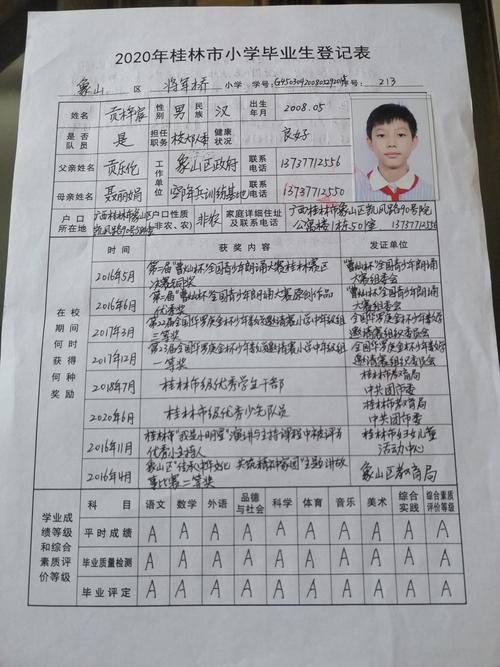 2020年桂林市小学毕业生登记表
象山 区 将军桥 小学 学号: 号: 213
姓名 性别 男 民族 汉 出生年月 2008.05
是否队员 是 担任职务 健康状况 良好
父亲姓名 工作单位 象山区政府 联系电话 13737112556
母亲姓名 联系电话 13737112550
户口所在地 广西桂林市象山区凯风路90号 户口性质(非农、农) 非农 家庭详细住址及联系电话 广西桂林市象山区凯风路90号院
1栋50室 13737112556
在校期间何时获得何种奖励
时间 获奖内容 发证单位
2016年5月 "曹灿杯"全国青少年朗诵大赛桂林赛区 "曹灿杯"全国青少年朗诵
大赛组委会
2016年6月 "曹灿杯"全国青少年朗诵大赛原创作品 "曹灿杯"全国青少年朗诵
优秀奖 大赛组委会
2017年3月 第22届全国华罗庚金杯少年数学邀请赛小学中年级组 全国华罗庚金杯少年数学
三等奖 邀请赛组织委员会
2017年12月 第23届全国华罗庚金杯少年数学邀请赛小学中年级组 全国华罗庚金杯少年数学
一等奖 邀请赛组织委员会
2018年7月 桂林市级优秀学生干部 桂林市教育局
中共团市委
2020年6月 桂林市级优秀少先队员 桂林市教育局
中共团市委
2016年11月 桂林市"我是小明星"演讲与主持课程中被评为 桂林市妇女儿童
优秀小主持人 活动中心
2016年4月 象山区"传承中华文化 共筑精神家园"主题讲故 象山区教育局
事比赛二等奖
学业成绩等级和综合素质评价等级
科目 语文 数学 外语 品德与社会 科学 体育 音乐 美术 综合实践 综合素质评价等级
平时成绩 A A A A A A A A A A
毕业质量检测 A A A A A A A A A A
毕业评定 A A A A A A A A A A